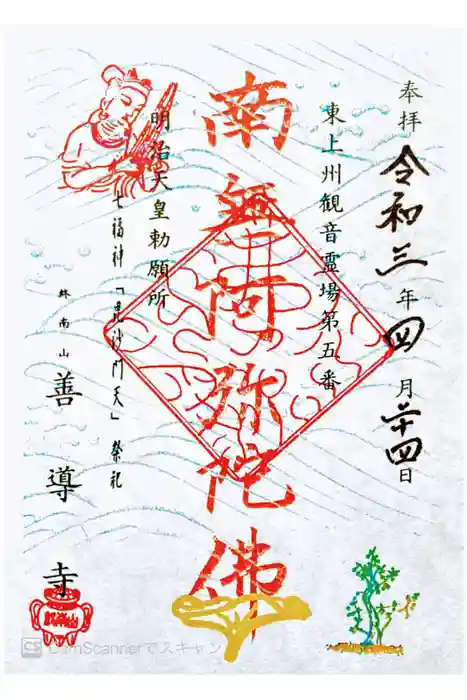 奉拝
令和三年四月廿四日
東上州観音霊場第五番
南無阿弥陀佛
明治天皇勅願所
七福神「毘沙門天」祭祀
終南山
善導寺
CS CamScannerでスキャン